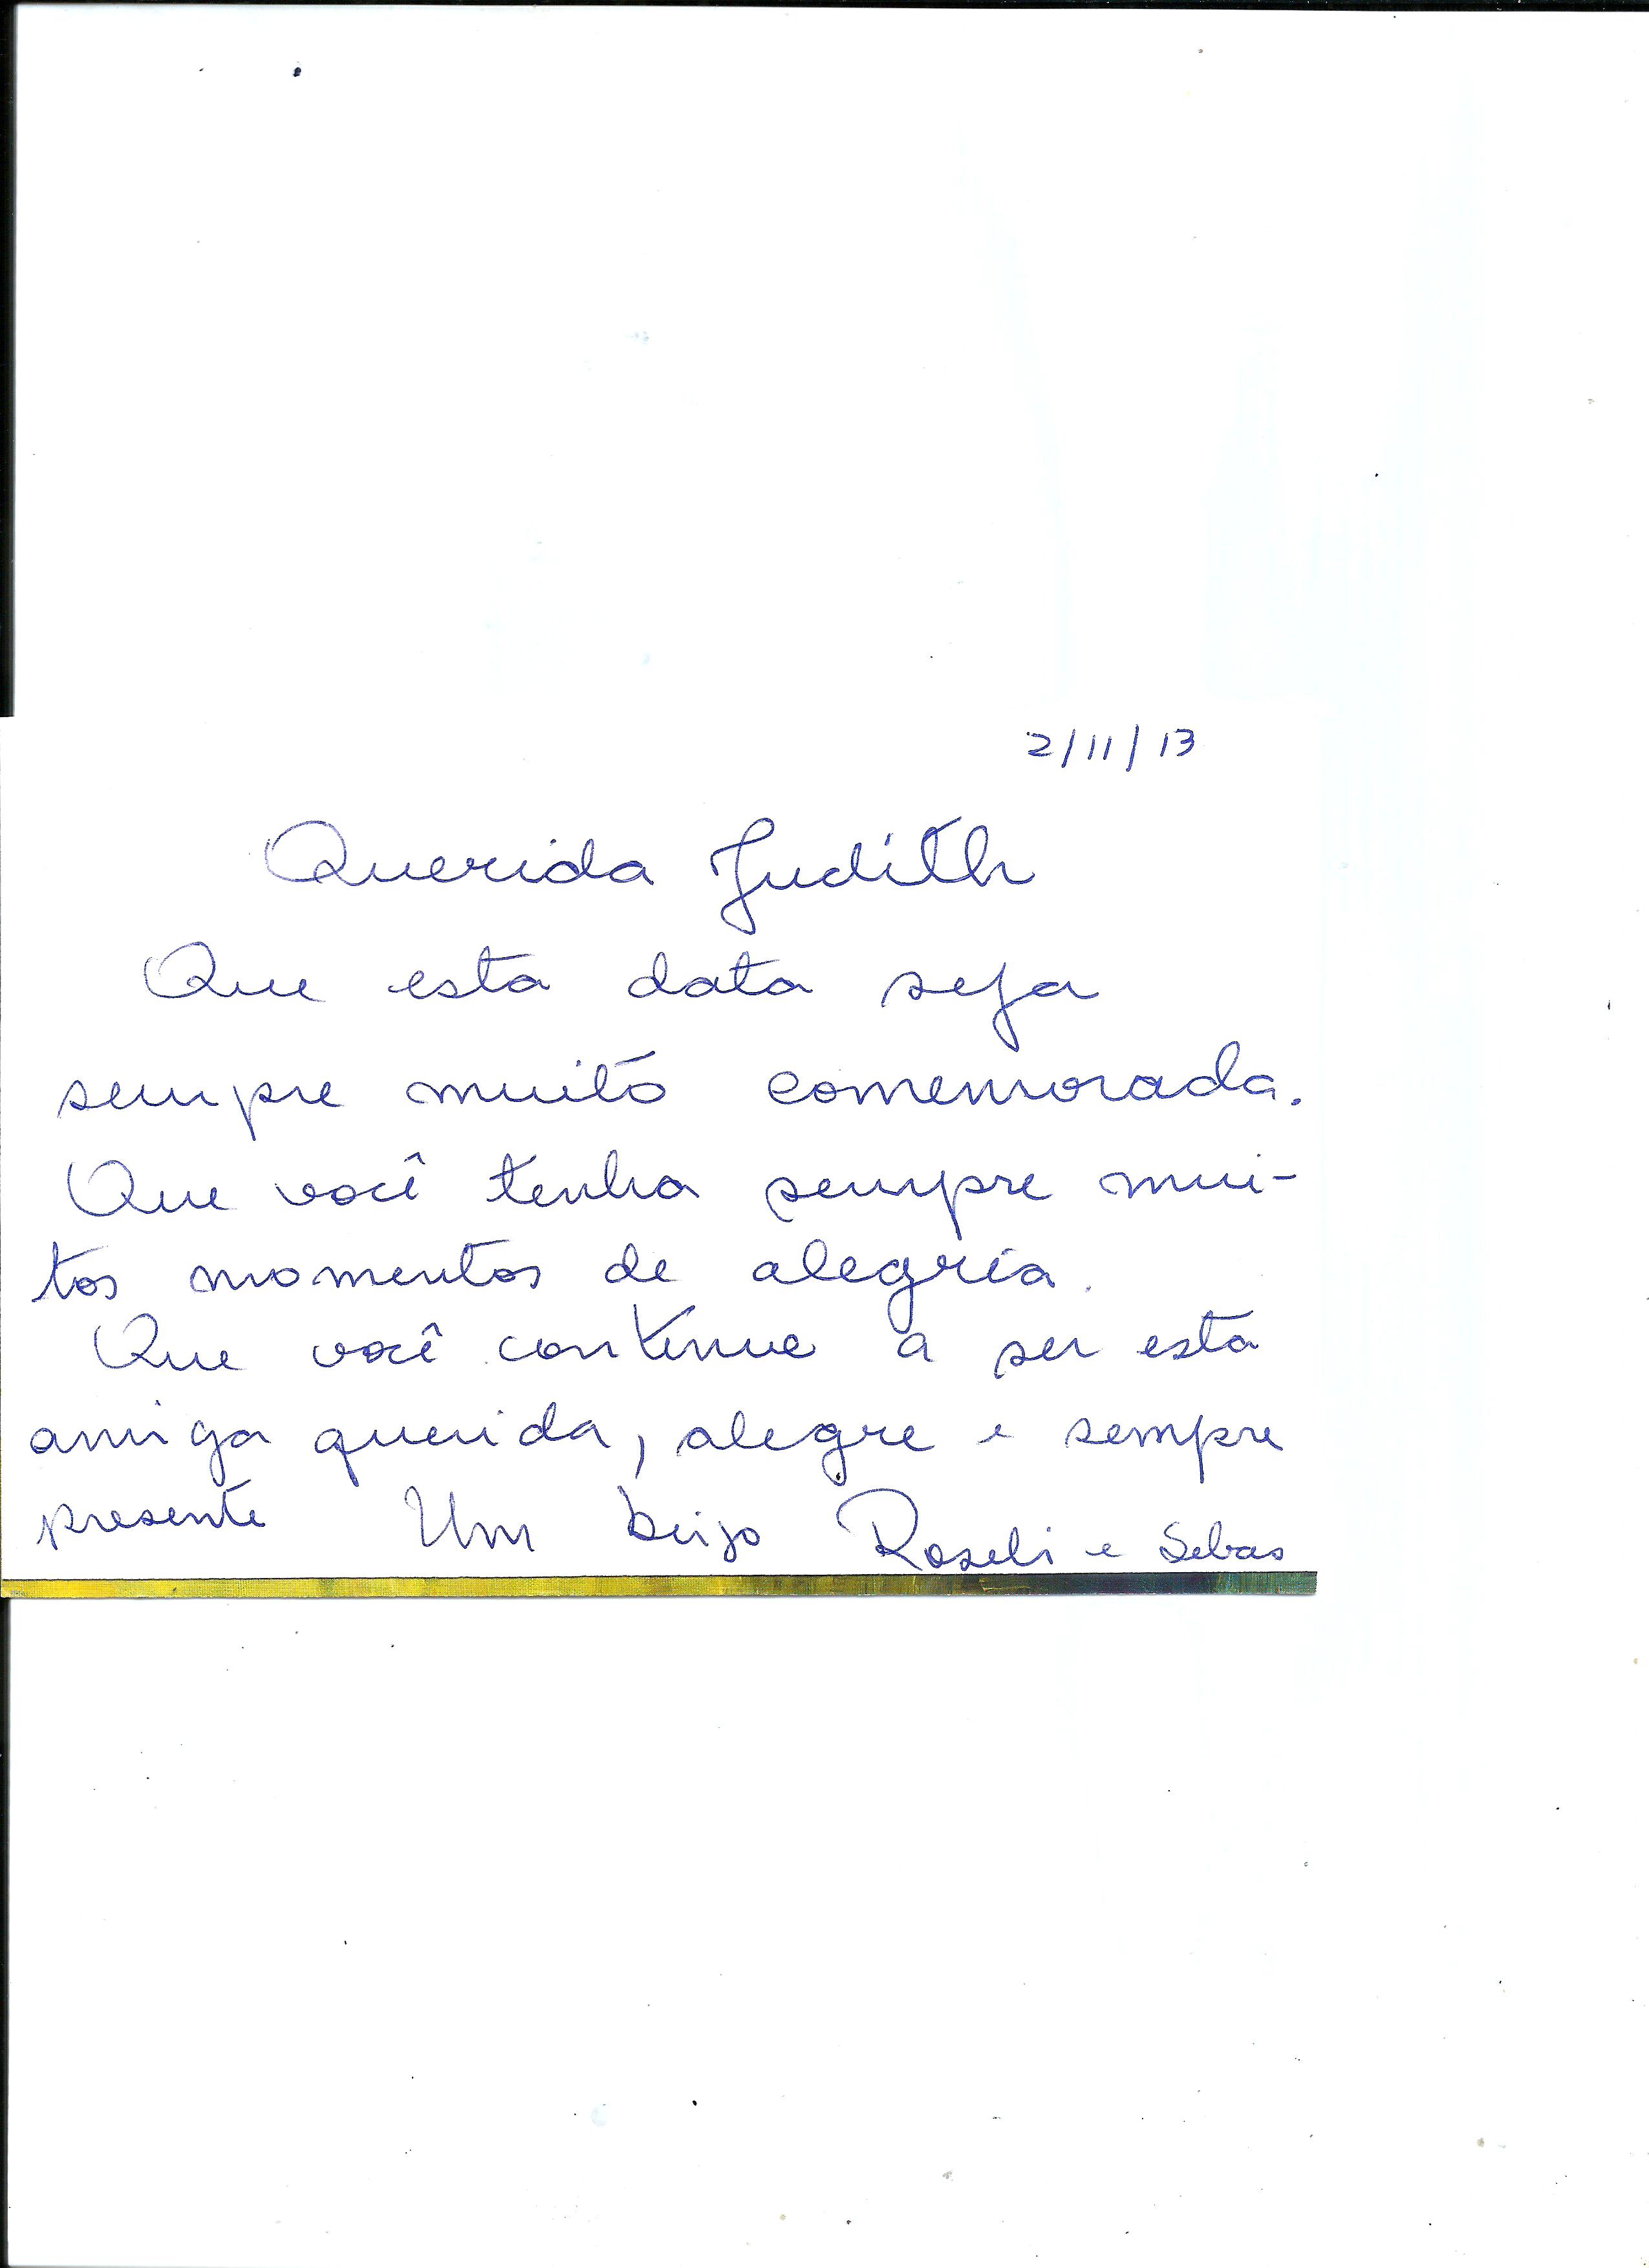 2/11/13
Querida Judith
Que esta data seja
sempre muito comemorada.
Que você tenha sempre mui-
tos momentos de alegria.
Que você continue a ser esta
amiga querida, alegre e sempre
presente Um beijo Roseli e Sebas